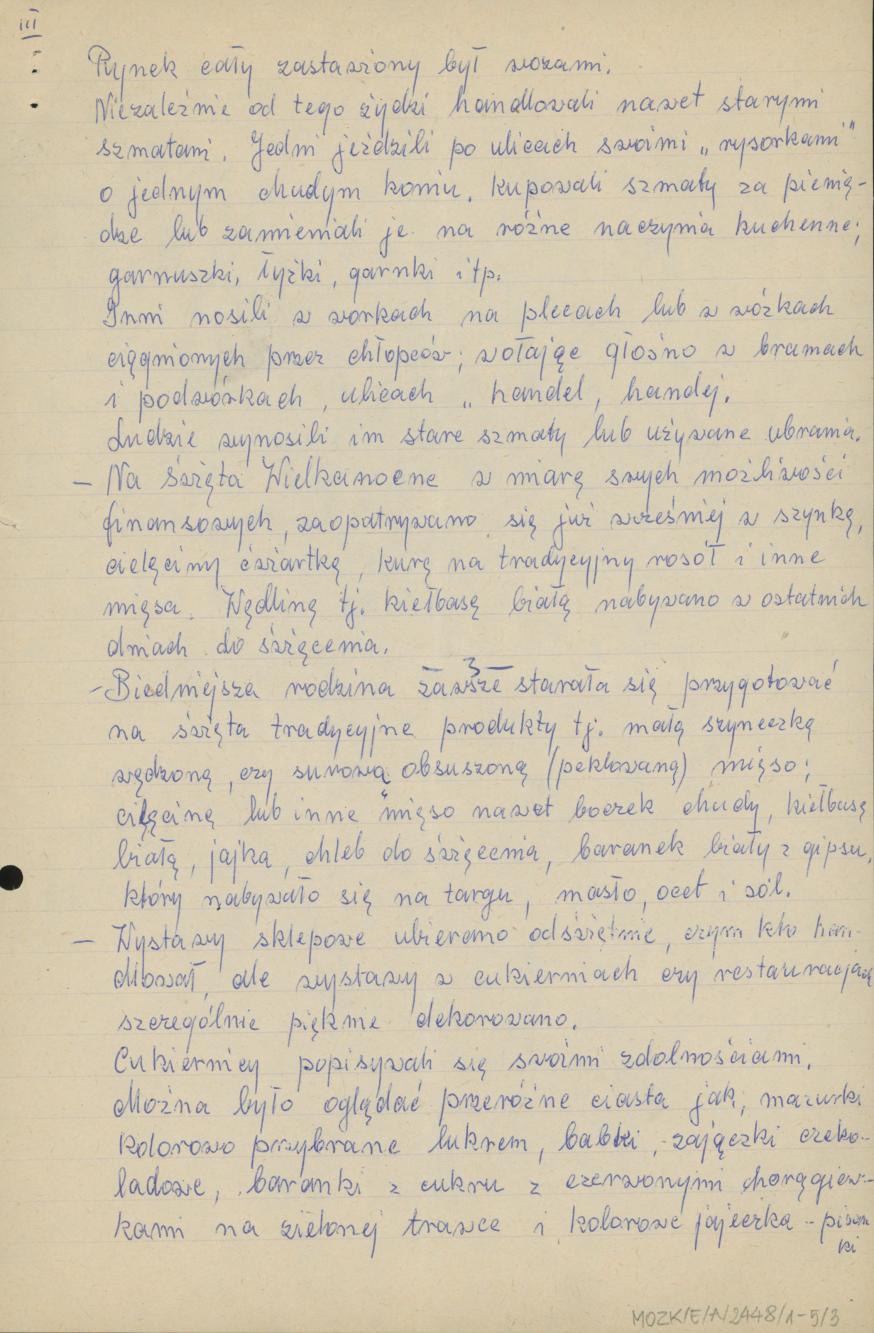 III
Rynek cały zastawiony był wozami.
Niezależnie od tego żydzi handlowali nawet starymi
szmatami. Jedni jeździli po ulicach swoimi „rysorkami"
o jednym chudym koniu. Kupowali szmaty za pienią-
dze lub zamieniali je na różne naczynia kuchenne;
garnuszki, łyżki, garnki itp.
Inni nosili w workach na plecach lub w wózkach
ciągnionych przez chłopców; wołając głośno w bramach
i podwórkach, ulicach „handel, handej.
Ludzie wynosili im stare szmaty lub używane ubrania.
— Na Święta Wielkanocne w miarę swych możliwości
finansowych, zaopatrywano się już wcześniej w szynkę,
cielęciny ćwiartkę, kurę na tradycyjny rosół i inne
mięsa. Wędlinę tj. kiełbasę białą nabywano w ostatnich
dniach do święcenia.
— 3 —
- Biedniejsza rodzina zawsze starała się przygotować
na święta tradycyjne produkty tj. małą szyneczkę
wędzoną, czy surową obsuszoną (peklowaną) mięso;
cielęcinę lub inne mięso nawet boczek chudy, kiełbasę
białą, jajka, chleb do święcenia, baranek biały z gipsu,
który nabywało się na targu, masło, ocet i sól.
— Wystawy sklepowe ubierano odświętnie, czym kto han-
dlował, ale wystawy w cukierniach czy restauracjach
szczególnie pięknie dekorowano.
Cukiernicy popisywali się swoimi zdolnościami.
Można było oglądać przeróżne ciasta jak; mazurki
kolorowo przybrane lukrem, babki, zajączki czeko-
ladowe, baranki z cukru z czerwonymi chorągiew-
kami na zielonej trawce i kolorowe jajeczka - pisan
ki
MOZK/E/A/2448/1-5/3